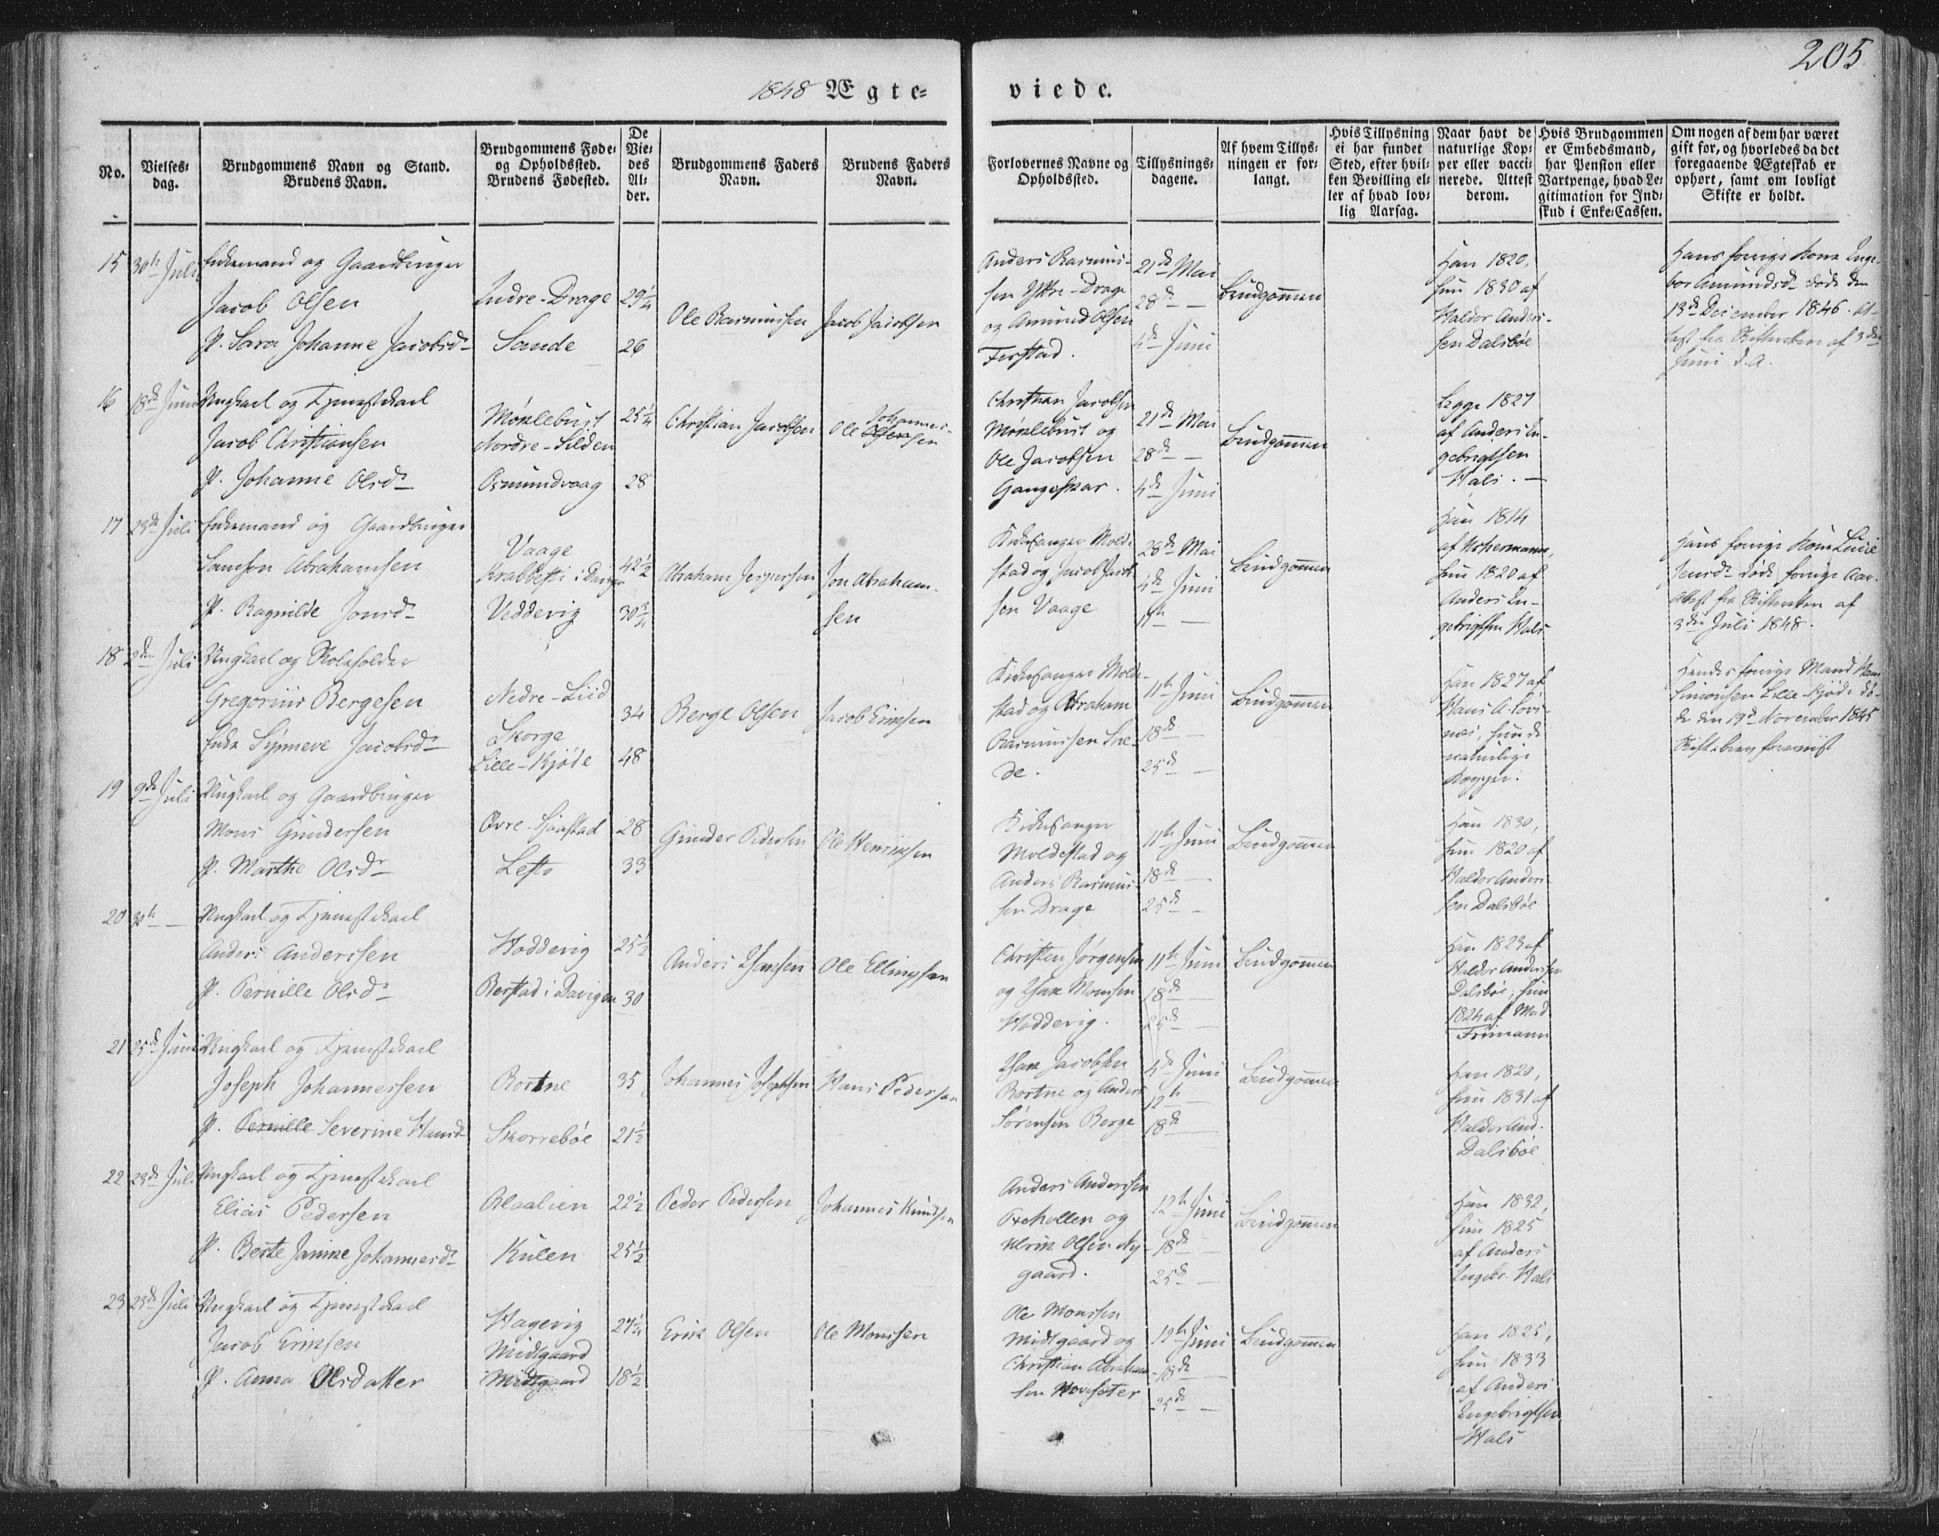 205
1848 Ægte-
viede.
No.
Vielses-
dag.
Brudgommens Navn og Stand.
Brudens Navn.
Brudgommens Føde-
og Opholdssted.
Brudens Fødested.
De
Vie-
des
Al-
der.
Brudgommens Faders
Navn.
Brudens Faders
Navn.
Forlovernes Navne og
Opholdssted.
Tillysnings-
dagene.
Af hvem Tillys-
ningen er for-
langt.
Hvis Tillysning
ei har fundet
Sted, efter hvil-
ken Bevilling el-
ler af hvad lov-
lig Aarsag.
Naar havt de
naturlige Kop-
per eller vacci-
nerede. Attest
derom.
Hvis Brudgommen
er Embedsmand,
har Pension eller
Vartpenge, hvad Le-
gitimation for Ind-
skud i Enke-Cassen.
Om nogen af dem har været
gift før, og hvorledes da det
foregaaende Ægteskab er
ophørt, samt om lovligt
Skifte er holdt.
15 30th Juli Enkemand og Gaardbruger
Jacob Olsen
P. Sara Johanne Jacobsd
Indre-Drage
Sande
29 1/4
26
Ole Rasmussen
Jacob Jacobsen
Anders Rasmus-
sen Ytre-Drage
og Amund Olsen
Ferstad.
21de Mai
28de —
4de Juni
Brudgommen
Han 1820,
hun 1830 af
Haldor Anders-
sen Dalsbøe
Hans forrige Kone Inge-
bor Amundsd døde den
13de December 1846. At-
test fra Skifteretten af 3die
Juni d.A.
16 18de Juni Ungkarl og Tjenestekarl
Jacob Christiansen
P. Johanne Olsd
Møklebust
Nordre-Silden
Osmundvaag
25 1/4
28
Christian Jacobsen
Ole Johannes-
Olsensen
Christian Jacobsen
Møklebust og
Ole Jacobsen
Gangeskar.
21de Mai
28de —
4de Juni
Brudgommen
Begge 1827
af Anders En-
gebrigtsen
Hals. —
17 23de Juli Enkemand og Gaardbruger
Samson Abrahamsen
P. Ragnilde Jonsd
Vaage
Krabbesti i Davigen
Veddevig
42 1/2
30 3/4
Abraham Jespersen
Jon Abraham-
sen
Kirkesanger Molde-
stad og Jacob Jacob-
sen Vaage
28de Mai
4de Juni
11th —
Brudgommen
Han 1814
af Astermann,
hun 1820 af
Anders En-
gebrigtsen Hals
Hans forrige Kone Lucie
Jensd døde forrige Aar.
Attest fra Skifteretten af
3die Juli 1848.
18 2den Juli Ungkarl og Skoleholder
Gregorius Bergesen
Enke Synneve Jacobsd
Nedre-Liid
Skorge
Lille-Kjøde
34
48
Berge Olsen
Jacob Ericksen
Kirkesanger Molde-
stad og Abraham
Rasmussen Sne-
de.
11th Juni
18de —
25de —
Brudgommen
Han 1827 af
Hans A. Løvi-
næs, hun de
naturlige
Kopper.
Hendes forrige Mand Hans
Simonsen Lille-Kjøde dø-
de den 19de November 1845
Skiftebrev foreviist
19 9de Juli Ungkarl og Gaardbruger
Mons Gundersen
P. Marthe Olsd
Øvre-Sjaastad
Lefto
28
33
Gunder Pedersen
Ole Henriksen
Kirkesanger
Moldestad og
Anders Rasmus-
sen Drage
11th Juni
18de —
25de —
Brudgommen
Han 1830,
hun 1820 af
Haldor Anders-
sen Dalsbøe
20 30th — Ungkarl og Tjenestekarl
Anders Anderssen
P. Pernille Olsd
Hoddevig
Berstad i Davigen
25 1/2
30
Anders Isaksen
Ole Ellingsen
Christen Jørgensen
og Isak Monsen
Hoddevig.
11th Juni
18de —
25de —
Brudgommen
Han 1823 af
Haldor Anderssen
Dalsbøe, hun
1824 af Mad.
Frimann
21 25de Juni Ungkarl og Tjenestekarl
Joseph Johannessen
P. Pernille Severine Hansd
Rostne
Skorrebøe
35
21 1/2
Johannes Josephsen
Hans Pedersen
Isak Jacobsen
Rostne og Anders
Sørensen Berge
4de Juni
12th —
18de —
Brudgommen
Han 1820,
hun 1831 af
Haldor And.
Dalsbøe
22 23de Juli Ungkarl og Tjenestekarl
Elias Pedersen
P. Berte Janikke Johannesd
Blaalien
Kulen
22 1/2
25 1/2
Peder Pedersen
Johannes Knudsen
Anders Andersen
Rekollen og
Ulrik Olsen Ny-
gaard.
12th Juni
18de —
25de —
Brudgommen
Han 1832,
hun 1825
af Anders
Engebr. Hals
23 23de Juli Ungkarl og Tjenestekarl
Jacob Ericksen
P. Anna Olsdatter
Hagevig
Midtgaard
Midtgaard
27 1/4
18 1/2
Erick Olsen
Ole Monsen
Ole Monsen
Midtgaard og
Christian Abraham-
sen Hovseter
12th Juni
18de —
25de —
Brudgommen
Han 1825,
hun 1833
af Anders
Engebrigtsen
Hals